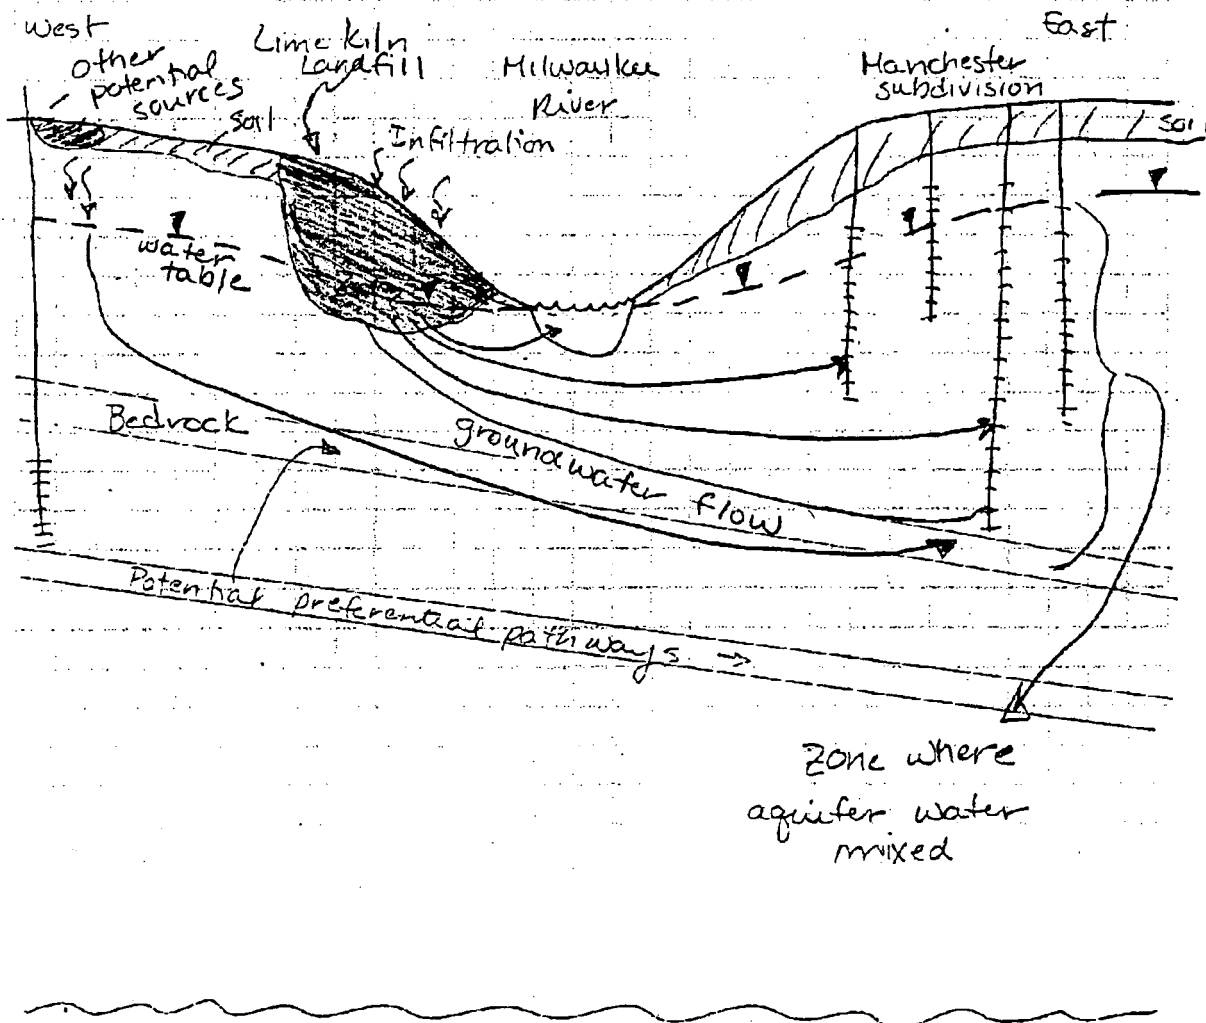 West
East
other
potential
sources
Lime Kiln
Landfill
Milwaukee
River
Manchester
subdivision
soil
Infiltration
soil
water
table
Bedrock
groundwater flow
Potential preferential pathways →
Zone where
aquifer water
mixed